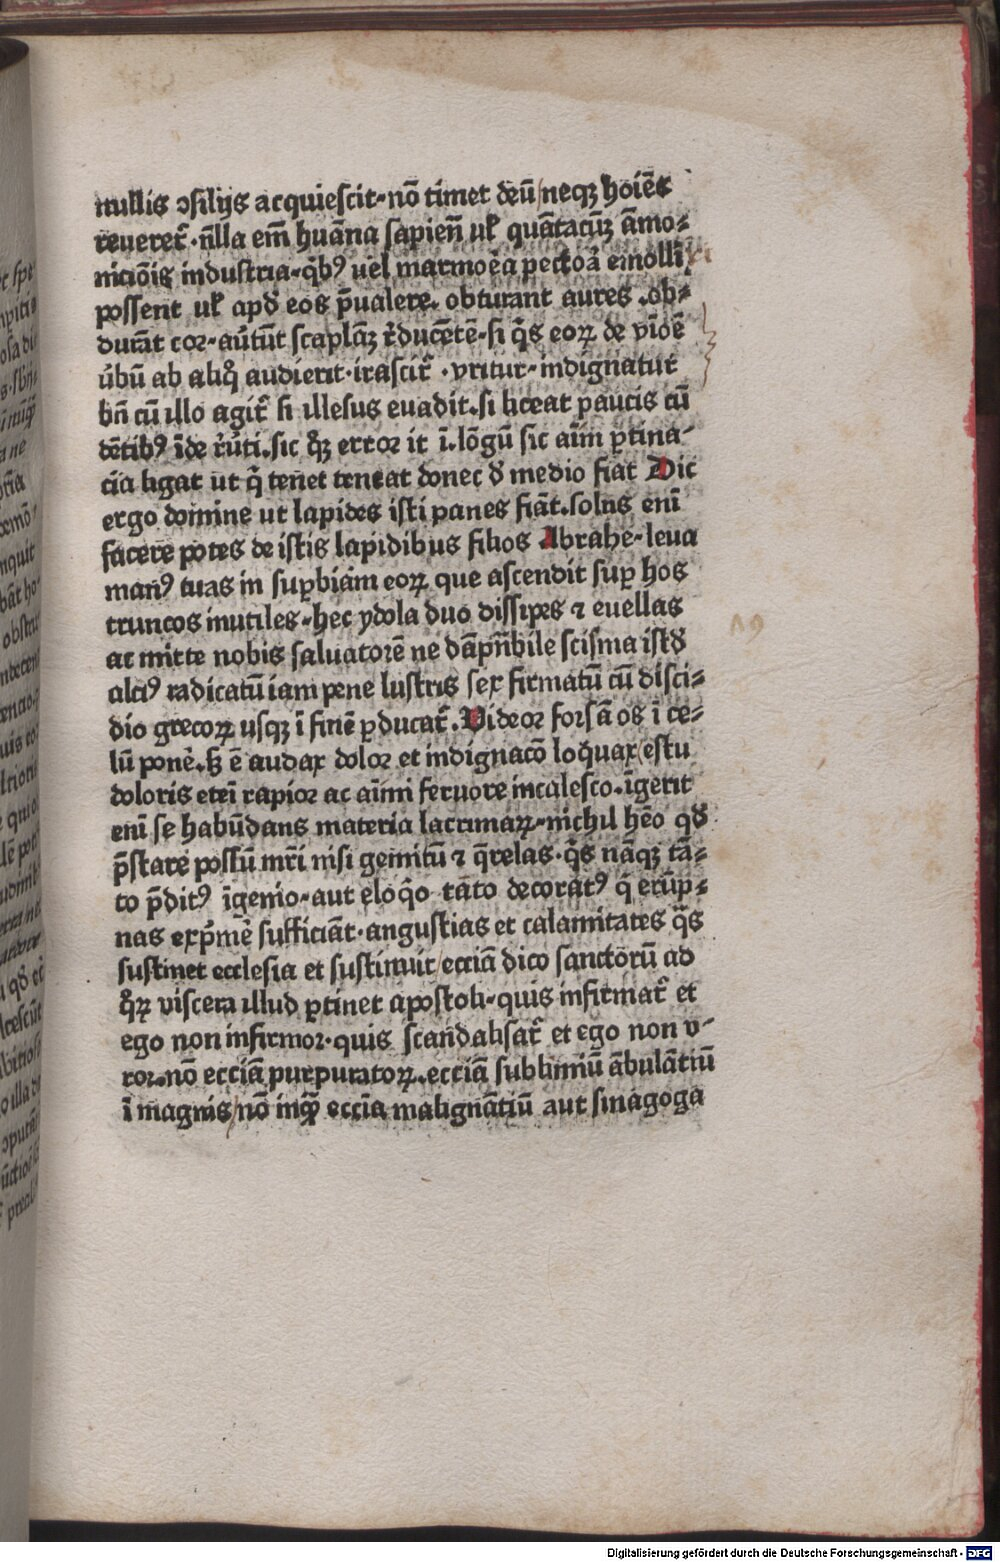 nullis ↄsilijs acquiescit·nō timet deū/neqꝫ hoiēs
reueret̄·n̄lla em̄ huāna sapien̄ ul̓ quātacūꝫ āmo⸗
nicōis industria·q̄bꝰ uel marmoēa pectoā emolli
possent ul̓ apd̓ eos p̄ualere. obturant aures .ob⸗
durāt cor·aūtūt scaplāꝫ r̄ducētē·si q̄s eoꝝ de vīoē
ūbū ab aliq̄ audierit·irascit̄ ·vritur·indignatur
bn̄ cū illo agit̄ si illesus euadit.si liceat paucis cū
dētibꝰ īde r̄ūti.sic q̄ꝫ error it ī.lōgū sic aīm ꝑtina⸗
cīa ligat ut q̄ tenet teneat donec d̓ medio fiat Dic
ergo domine ut lapides isti panes fiāt.solus enī
facere potes de istis lapidibus filios Abrahe·leua
manꝰ tuas in suꝑbiam eoꝝ que ascendit suꝑ hos
truncos inutiles·hec ydola duo dissipes ⁊ euellas
ac mitte nobis saluatorē ne dāpn̄bile scisma istd̓
alciꝰ radicatū iam pene lustris sex firmatū cū disci⸗
dio grecoꝝ usqꝫ ī finē ꝑducat̄. Videor forsā os ī ce⸗
lū ponē.sꝫ ē audax dolor et indignacō loquax/estu
doloris eteī rapior ac aīmi feruore incalesco·īgerit
enī se habūdans materia lacrimaꝝ·nichil hēo qd̓
p̄stare possū mr̄i nisi gemitū ⁊ q̄relas·q̄s nāqꝫ tā⸗
to p̄ditꝰ īgenio·aut eloq̄o tāto decoratꝰ q̄ erūp⸗
nas exp̄mē sufficiāt·angustias et calamitates q̄s
sustinet ecclesia et sustinuit/eccīā dico sanctorū ad
q̄ꝝ viscera illud ꝑtinet apostoli·quis infirmat̄ et
ego non infirmor·quis scandalisat̄ et ego non v⸗
ror.nō eccīā purpuratoꝝ.eccīā sublimiū ābulātiū
ī magnis/nō inqꝫ eccīa malignātiū aut sinagoga
19
Digitalisierung gefördert durch die Deutsche Forschungsgemeinschaft - DFG